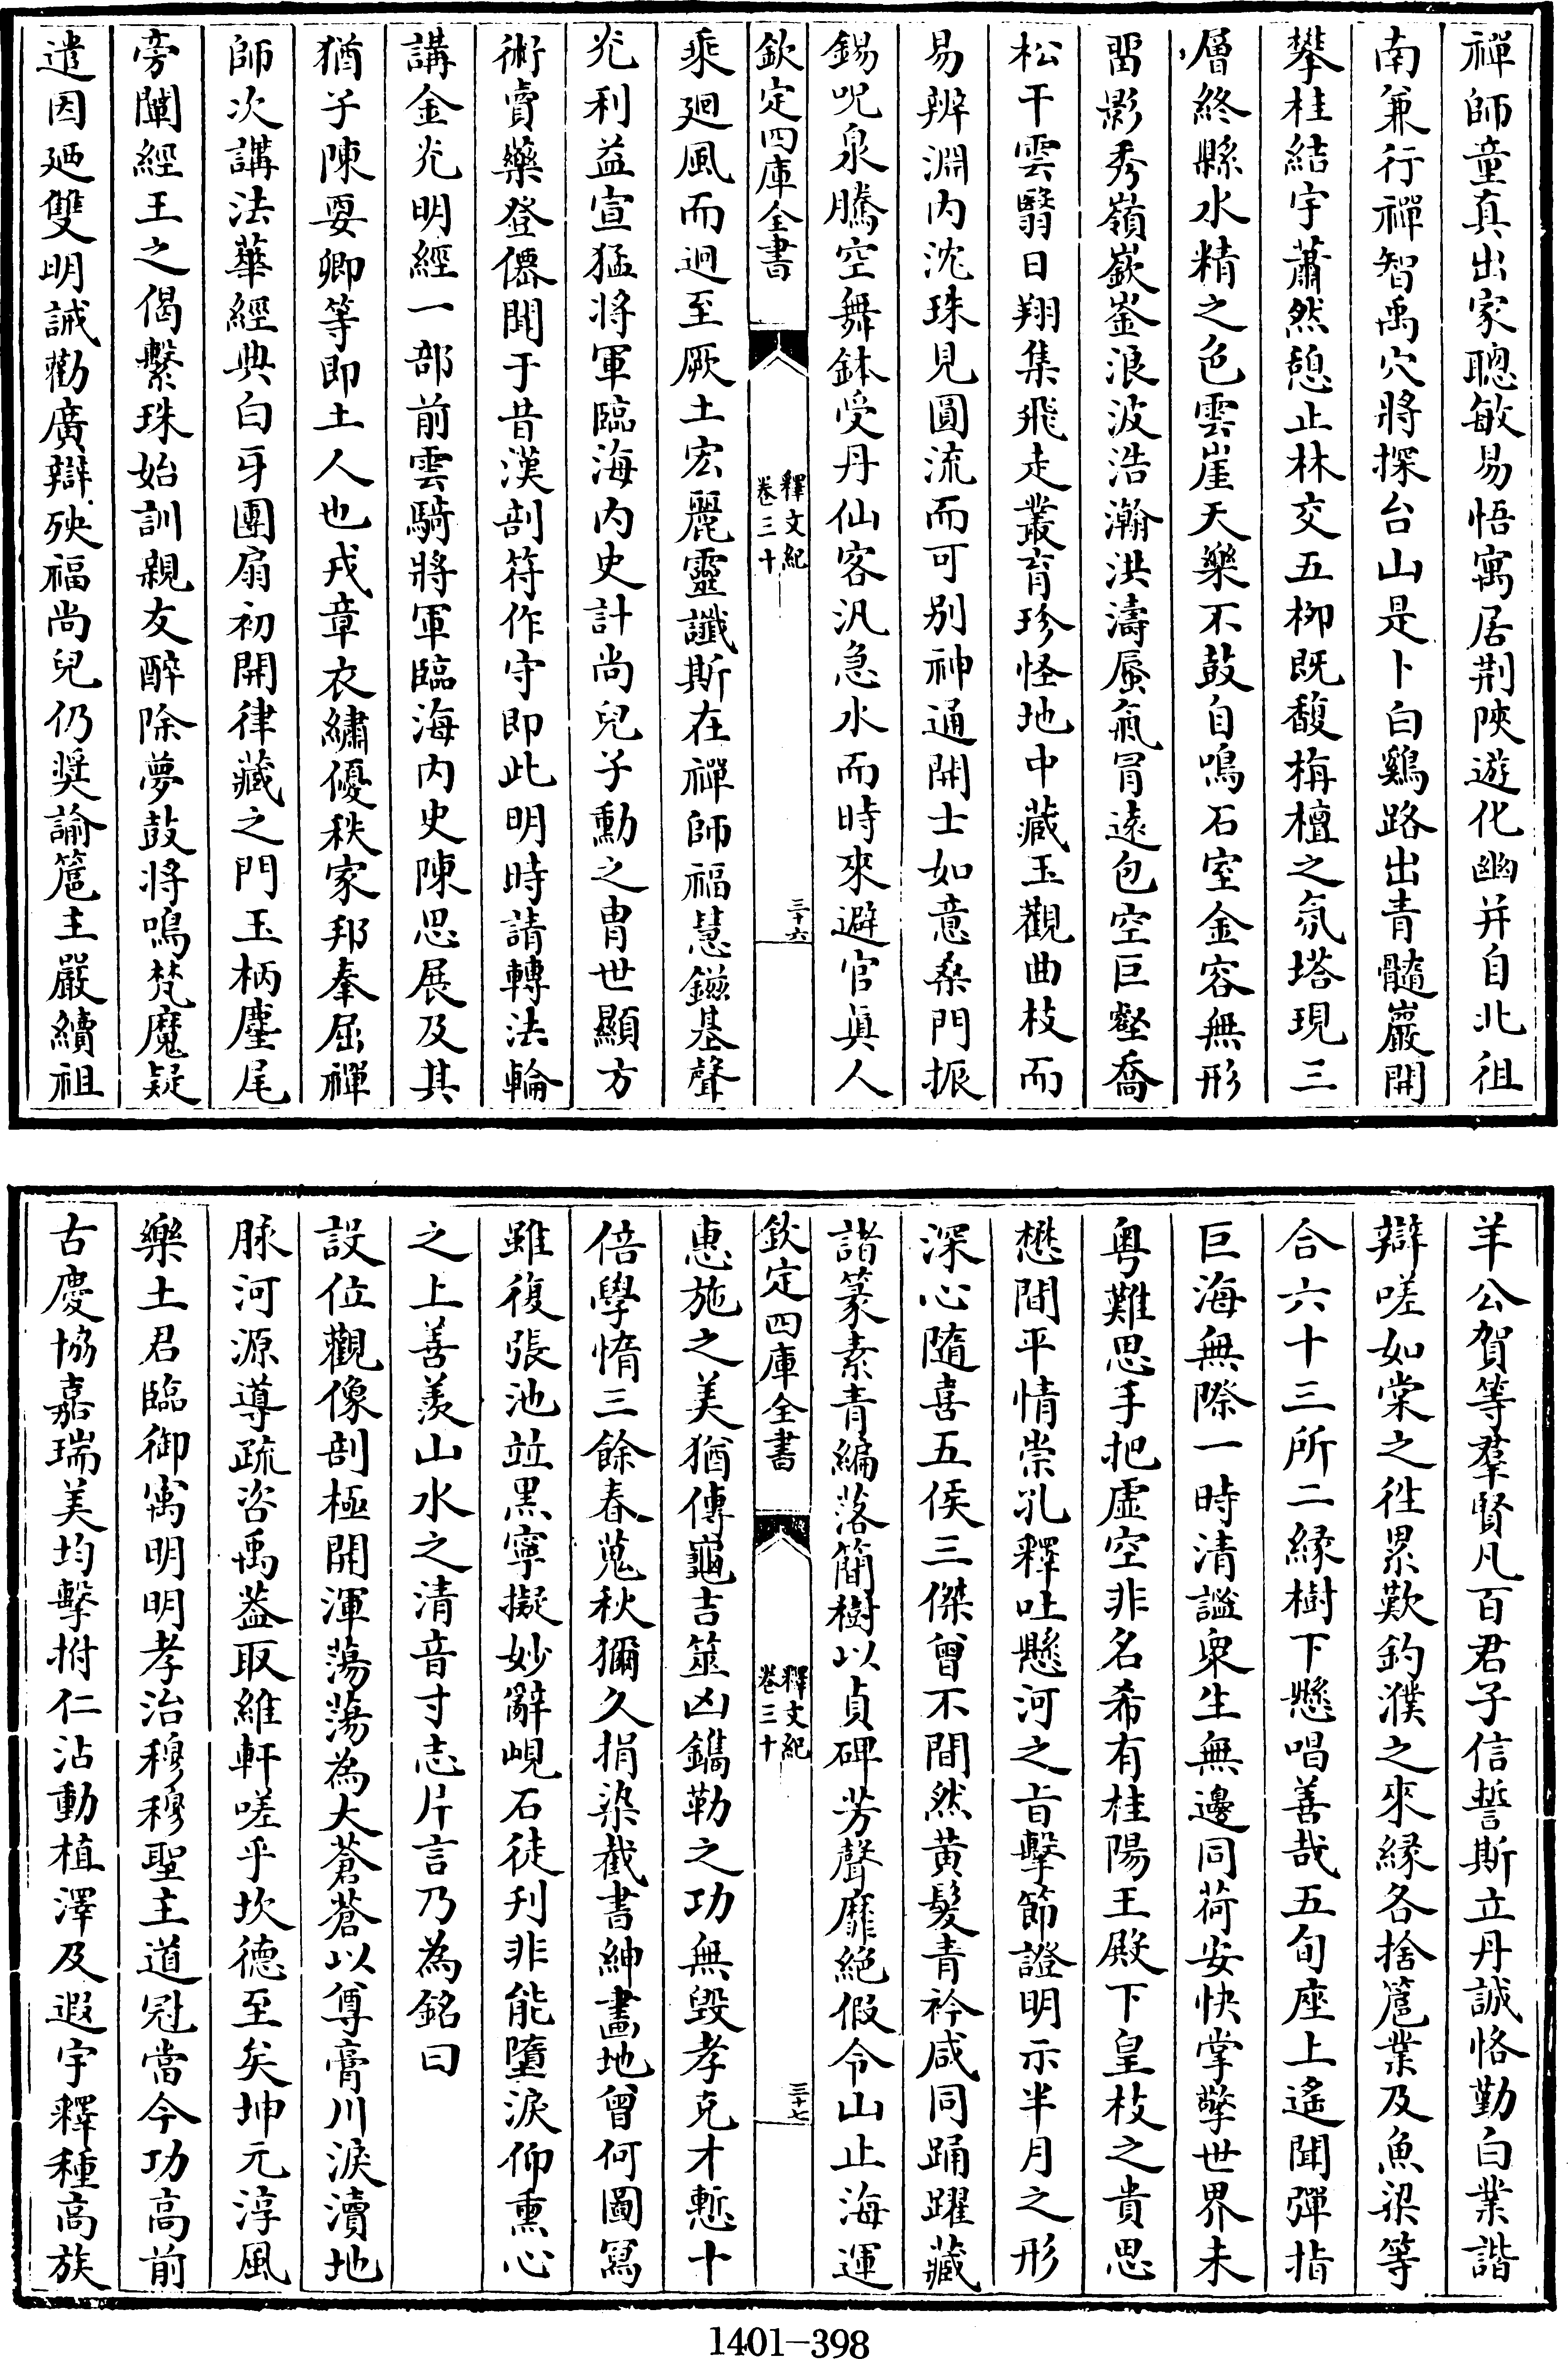 禪師童真出家聰敏易悟寓居荆陜遊化幽并自北徂
南兼行禪智禹穴將探台山是卜白鷄路出青髓巖開
攀桂結宇蕭然憩止林交五柳既馥栴檀之氛塔現三
層終縣水精之色雲崖天樂不鼓自鳴石室金容無形
畱影秀嶺嶔崟浪波浩瀚洪濤蜃氣冐遠包空巨壑喬
松干雲翳日翔集飛走叢育珍怪地中藏玉觀曲枝而
易辨淵内沈珠見圓流而可别神通開士如意桑門振
錫呪泉騰空舞鉢受丹仙客汎急水而時來避官真人
欽定四庫全書
釋文紀
卷三十
三十六
乘廻風而迥至厥土宏麗靈讖斯在禪師福慧鎡基聲
光利益宣猛將軍臨海内史計尚兒子勳之胄世顯方
術賣藥登僊聞于昔漢剖符作守即此明時請轉法輪
講金光明經一部前雲騎將軍臨海内史陳思展及其
猶子陳要卿等即土人也戎章衣繡優秩家邦奉屈禪
師次講法華經典白牙團扇初開律藏之門玉柄麈尾
旁闡經王之偈繫珠始訓親友醉除夢鼓將鳴梵魔疑
遣因廼雙明誡勸廣辯殃福尚兒仍奬諭篦主嚴續祖
羊公賀等羣賢凡百君子信誓斯立丹誠恪勤白業諧
辯嗟如棠之徃累歎釣濮之來縁各捨篦業及魚梁等
合六十三所二縁樹下懸唱善哉五旬座上遙聞彈指
巨海無際一時清謐衆生無邊同荷安快掌擎世界未
粤難思手把虚空非名希有桂陽王殿下皇枝之貴思
懋間平情崇孔釋吐懸河之旨擊節證明示半月之形
深心隨喜五侯三傑曾不間然黄髮青衿咸同踊躍藏
諸篆素青編落簡樹以貞碑芳聲靡絶假令山止海運
欽定四庫全書
釋文紀
卷三十
三十七
惠施之美猶傳龜吉筮凶鐫勒之功無毁孝克才慙十
倍學惰三餘春蒐秋獮久捐染截書紳畫地曾何圖冩
雖復張池竝黒寧擬妙辭峴石徒刋非能墮淚仰熏心
之上善羨山水之清音寸志片言乃為銘曰
設位觀像剖極開渾蕩蕩為大蒼蒼以尊膏川淚瀆地
脉河源導疏咨禹葢取維軒嗟乎坎德至矣坤元淳風
樂土君臨御寓明明孝治穆穆聖主道冠當今功高前
古慶恊嘉瑞美均擊拊仁沾動植澤及遐宇釋種高族
1401-398